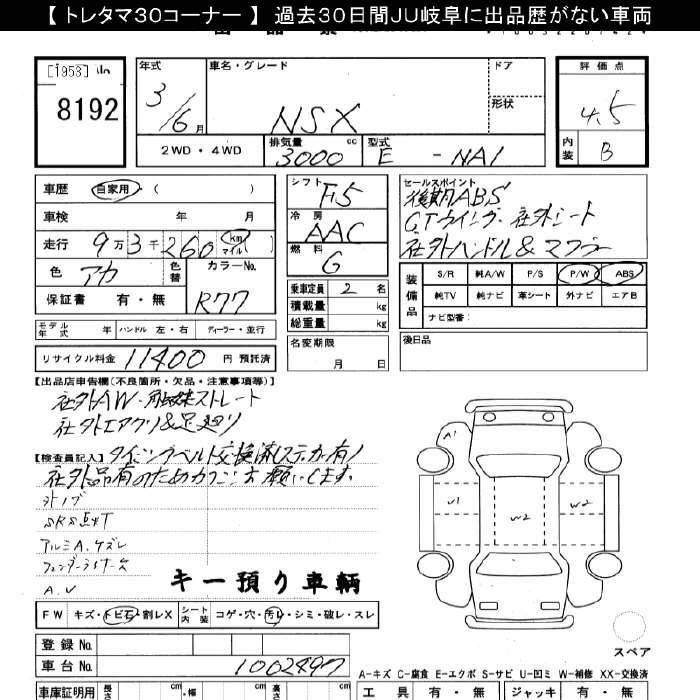 【 トレタマ30コーナー 】 過去30日間JU岐阜に出品歴がない車両
[1953]
8192
年式
3/6月
車名・グレード
NSX
ドア
形状
評価点
4.5
内装
B
2WD・4WD
排気量
3000
cc
型式
E - NA1
車歴
自家用・( )
車検 年 月
走行 9万3千260 km マイル
色 アカ
色替
カラーNo.
R77
保証書 有・無
モデル年式 年
ハンドル 左・右
ディーラー・並行
リサイクル料金 11400 円 預託済
シフト F5
冷房 AAC
燃料 G
乗車定員 2 名
積載量 kg
総重量 kg
名変期限
月 日
セールスポイント
後期ABS
GTウイング・社外シート
社外ハンドル&マフラー
装備品
S/R 純A/W P/S P/W ABS
純TV 純ナビ 革シート 外ナビ エアB
ナビ型番:
後日品
【出品店申告欄(不良箇所・欠品・注意事項等)】
社外AW・触媒ストレート
社外エアクリ&足廻り
【検査員記入】 タイミングベルト交換済(ステッカー有)
社外品有のため
外ノブ
SRS点灯
アルミA.ケズレ
フェンダーライナー欠
A.V
キー預り車輌
FW キズ・トビ石・割レX
シート内装 コゲ・穴・汚レ・シミ・破レ・スレ
登録No.
車台No. 1002497
車庫証明用 長さ cm ・幅 cm 高さ cm
A1
U1
W2
W2
スペア
A-キズ C-腐食 E-エクボ S-サビ U-凹ミ W-補修 XX-交換済
工具 有・無 ジャッキ 有・無